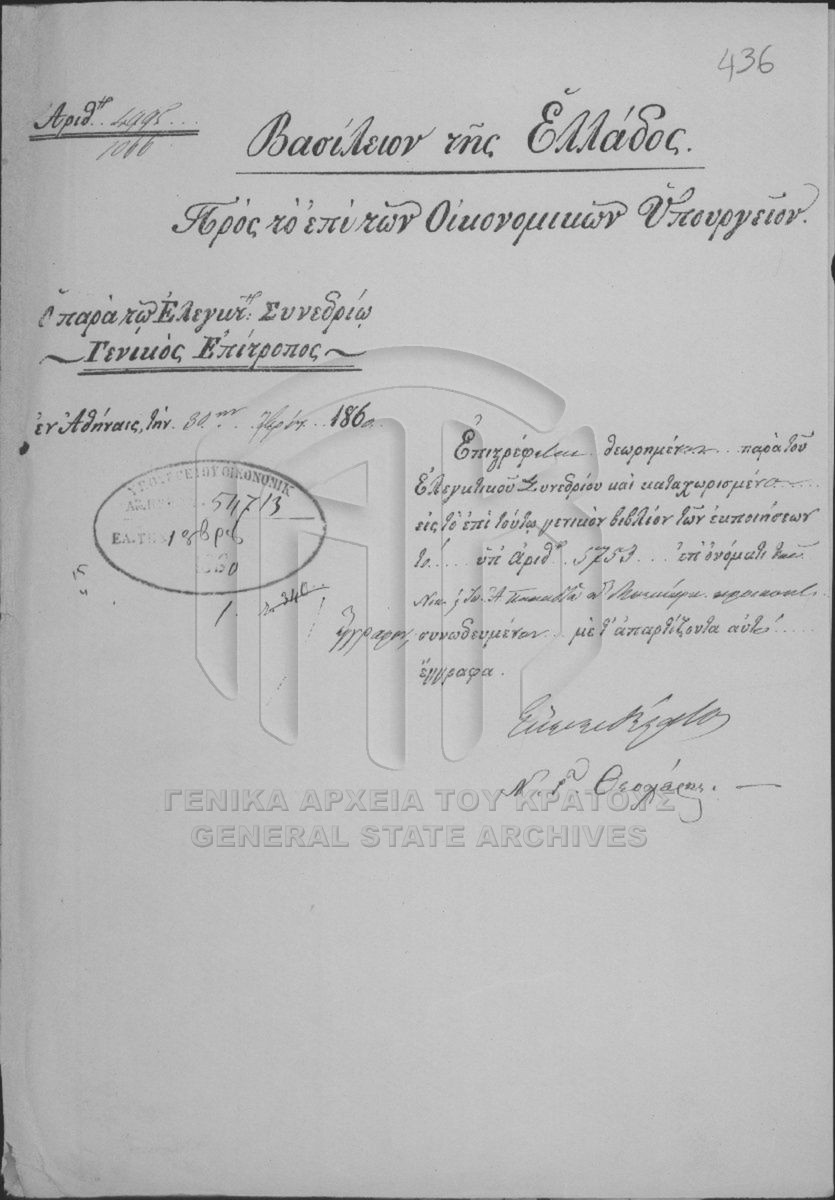 436
Ἀριθ. 4995
1066
Βασίλειον τῆς Ἑλλάδος.
Πρὸς τὸ ἐπὶ τῶν Οἰκονομικῶν Ὑπουργεῖον.
Ὁ παρὰ τῷ Ἐλεγκτ: Συνεδρίῳ
Γενικὸς Ἐπίτροπος
ἐν Ἀθήναις, τὴν 30 1860
ΥΠΟΥΡΓΕΙΟΥ ΟΙΚΟΝΟΜΙΚ
54713
ΕΛ. ΤΗΝ 1 8βρ
1860
Ἐπιστρέφεται θεωρημένον παρὰ τοῦ
Ἐλεγκτικοῦ Συνεδρίου καὶ καταχωρισμένον
εἰς τὸ ἐπὶ τούτῳ γενικὸν βιβλίον τῶν ἐκποιήσεων
τὸ ὑπ' ἀριθ. 5753 ἐπ' ὀνόματι τοῦ
ἔγγραφον, συνωδευμένον μὲ τ' ἀπαρτίζοντα αὐτὸ
ἔγγραφα.
ΓΕΝΙΚΑ ΑΡΧΕΙΑ ΤΟΥ ΚΡΑΤΟΥΣ
GENERAL STATE ARCHIVES